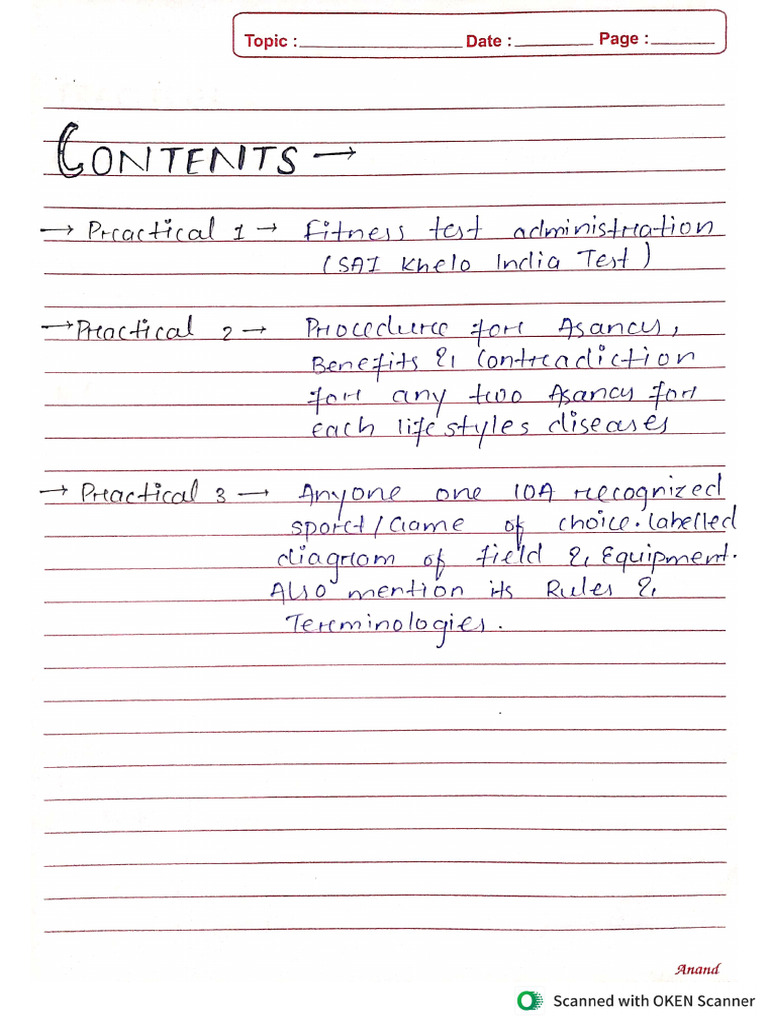 Topic : Date : Page :
CONTENTS →
→ Practical 1 → Fitness test administration
(SAI Khelo India Test)
→ Practical 2 → Procedure for Asanas,
Benefits & Contradiction
for any two Asanas for
each lifestyles diseases
→ Practical 3 → Anyone one IOA recognized
sport/Game of choice. labelled
diagram of field & Equipment.
Also mention its Rules &
Terminologies.
Anand
Scanned with OKEN Scanner